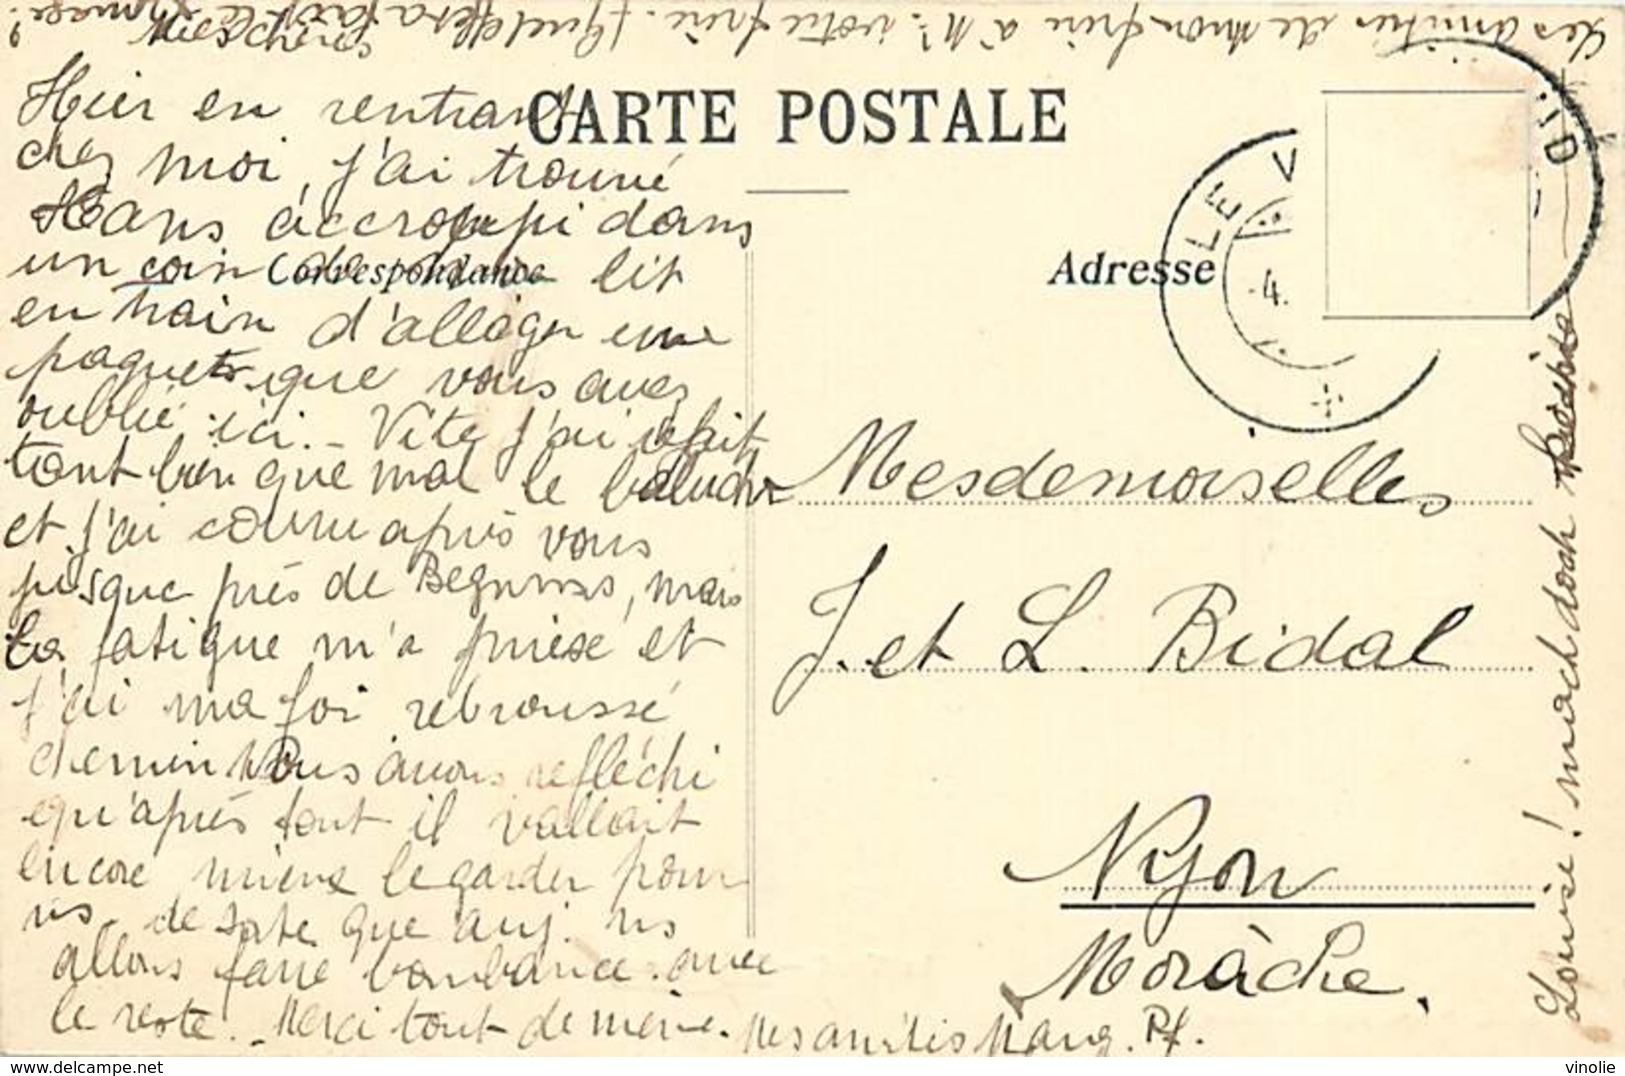 Les amitiés de mon frère à Mr. votre frère. Quel
Mes chères
CARTE POSTALE
Hier en rentrant
chez moi, j'ai trouvé
Hans accroupi dans
un coin lit
Correspondance
Adresse
en train d'alléger une
paquets que vous avez
oublié ici. - Vite j'ai refait
tant bien que mal le baluchon
et j'ai couru après vous
jusque près de Begnins, mais
la fatigue m'a prise et
j'ai ma foi rebroussé
chemin Nous avons refléchi
qu'après tout il vallait
encore mieux le garder pour
ns. de sorte que auj. ns
allons faire bombance avec
le reste. - Merci tout de même. Mes amitiés Marg. Pf.
Mesdemoiselles
J. et L. Bidal
Nyon
Morâche.
Louise! mach doch
LE V UD
4.
www.delcampe.net
vinolie